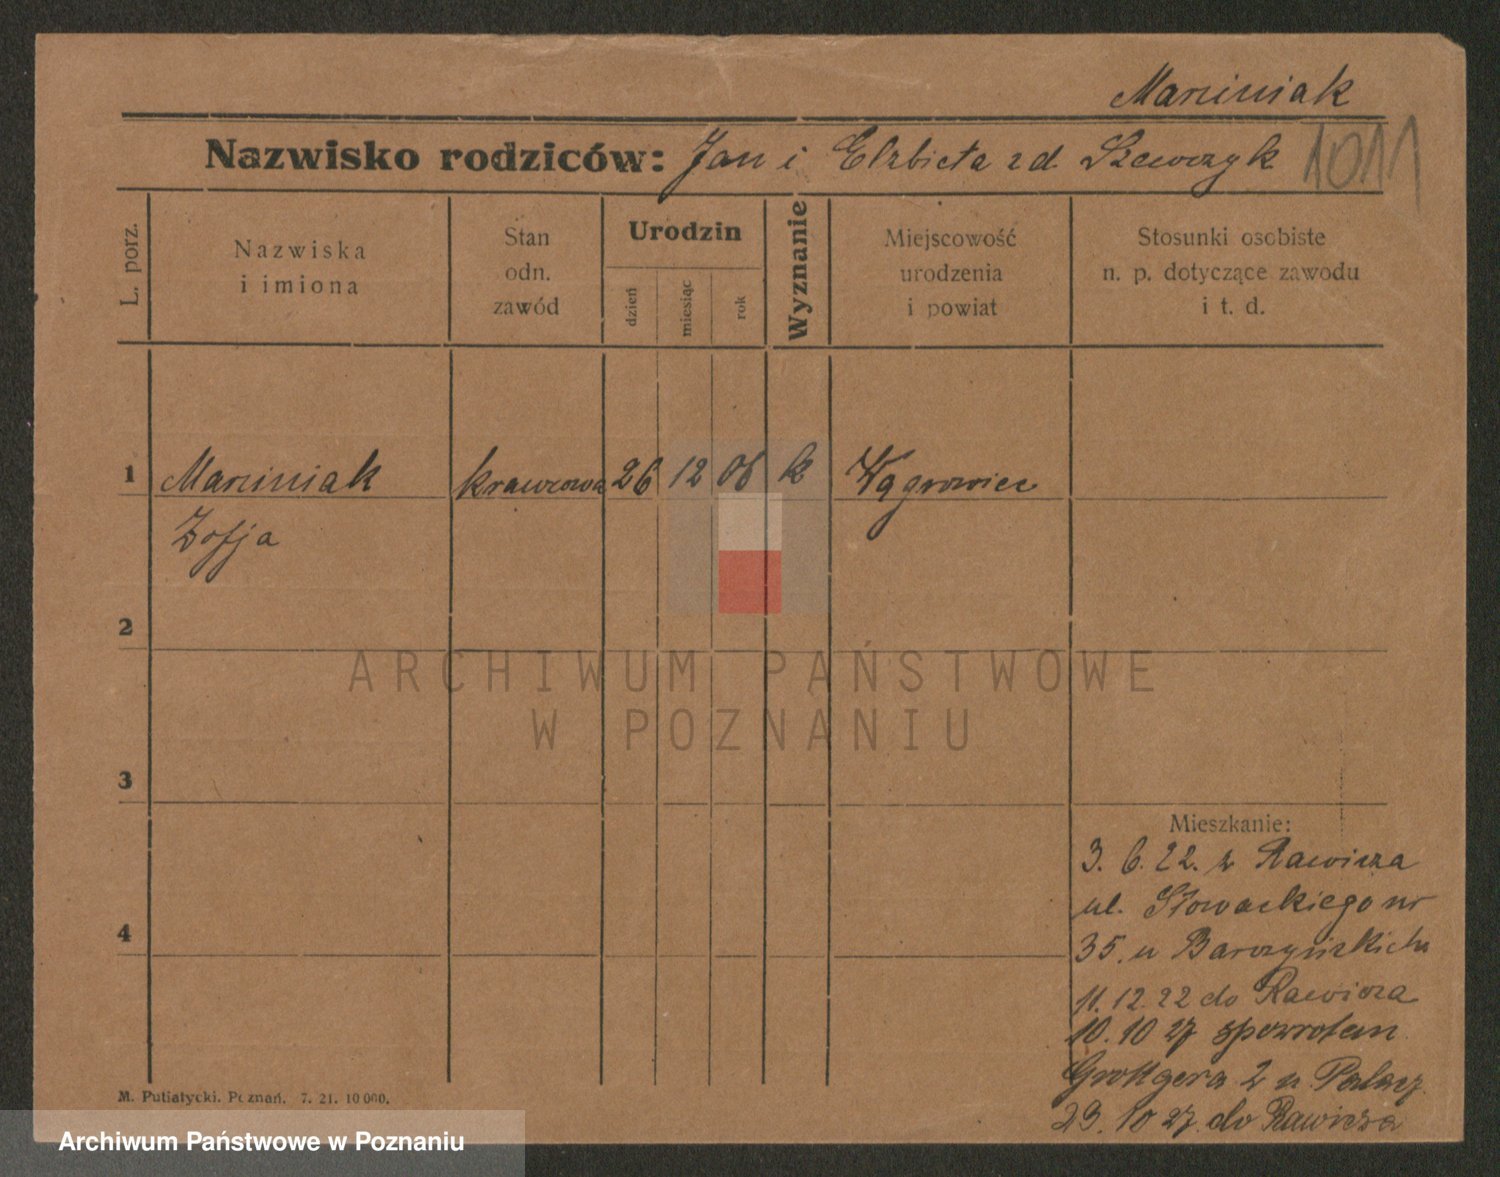 Marciniak
Nazwisko rodziców: Jan i Elzbieta z d. Szewczyk 1011
L. porz.
Nazwiska
i imiona
Stan
odn.
zawód
Urodzin
dzień
miesiąc
rok
Wyznanie
Miejscowość
urodzenia
i powiat
Stosunki osobiste
n. p. dotyczące zawodu
i t. d.
1 Marciniak krawcowa 26 12 06 k Wągrowiec
Zofja
2
ARCHIWUM PAŃSTWOWE
W POZNANIU
3
Mieszkanie:
3. 6. 22. z Rawicza
ul. Słowackiego nr
35. u Barczyńskich
4
11. 12. 22 do Rawicza
10. 10 27 spowrotem
Grottgera 2 u
29. 10 27. do Rawicza
M. Putiatycki. Poznań. 7. 21. 10000.
Archiwum Państwowe w Poznaniu